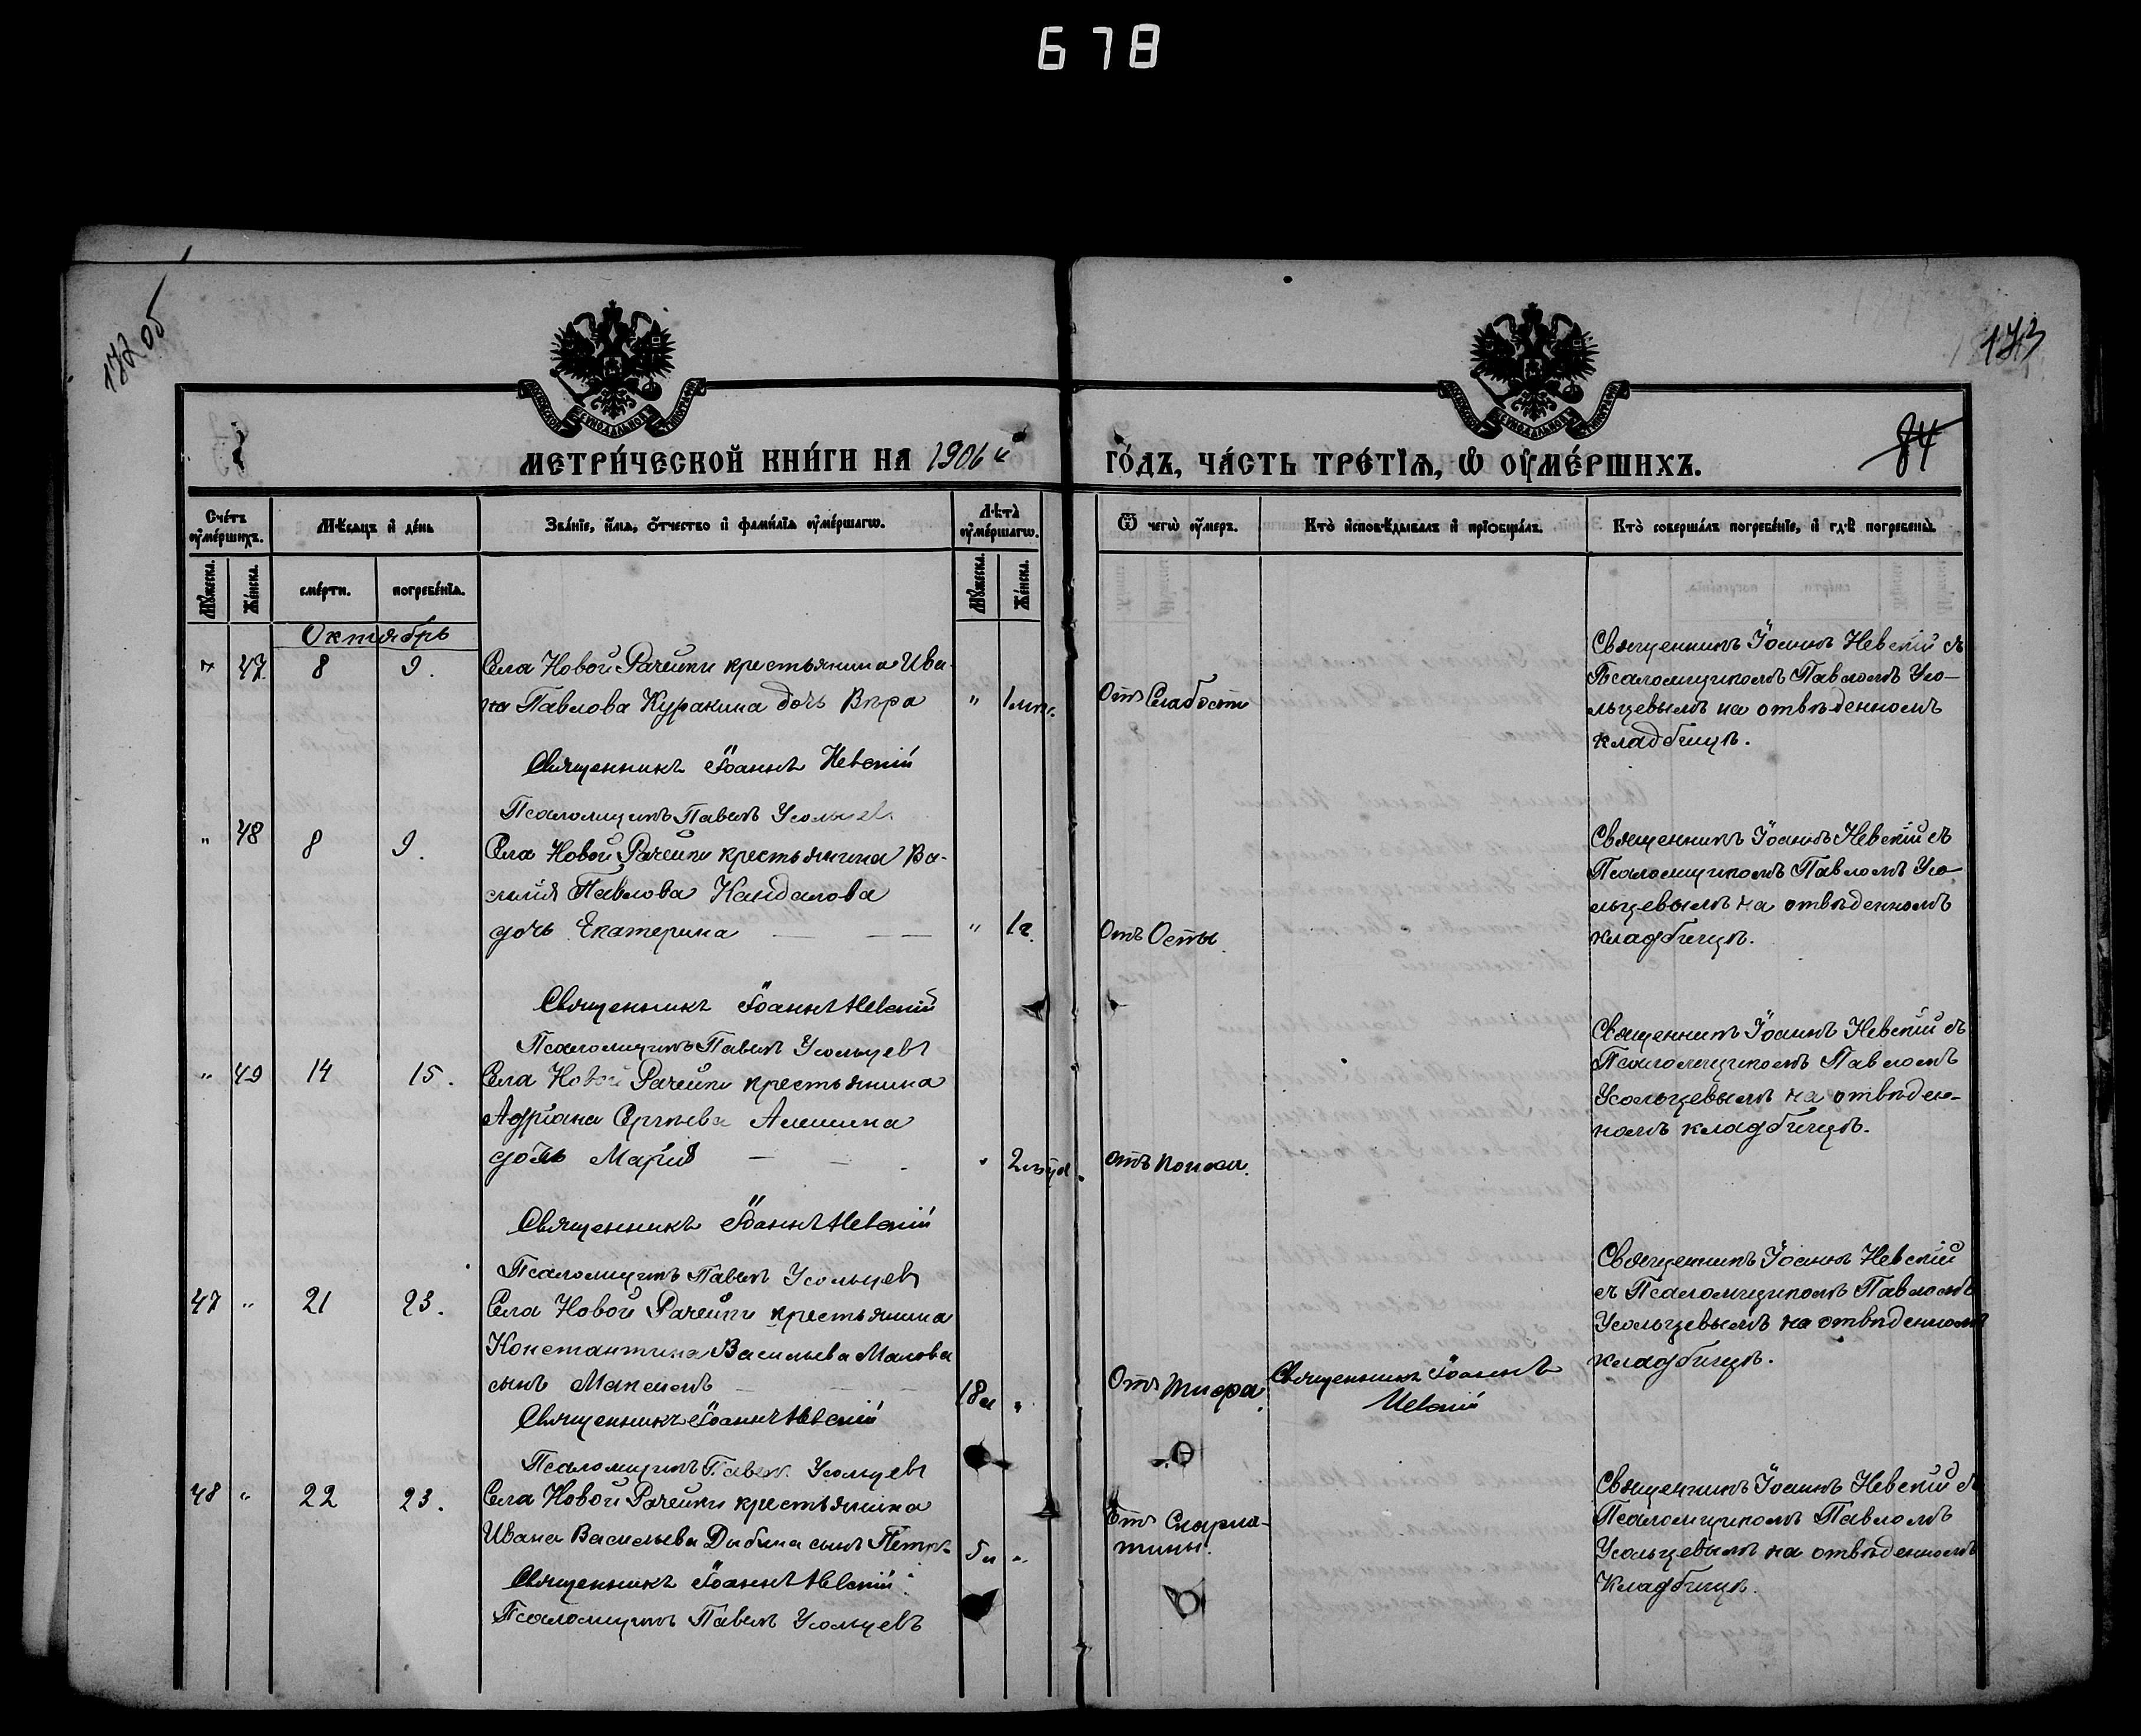 678
172 об
173
84
МЕТРИ́ЧЕСКОЙ КНИ́ГИ НА 1906 й
ГО́ДЪ, ЧА́СТЬ ТРЕ́ТІѦ, Ѡ҆ ОУ҆МЕ́РШИХЪ.
Сче́тъ оу҆ме́ршихъ.
Мѣ́сяцъ и҆ де́нь
Зва́нїе, и҆́мѧ, ѻ҆́тчество и҆ фами́лїѧ оу҆ме́ршагѡ.
Лѣ́та оу҆ме́ршагѡ.
Ѿ чегѡ̀ оу҆́меръ.
Кто̀ и҆сповѣ́дывалъ и҆ прїѻбща́лъ.
Кто̀ соверша́лъ погребе́нїе, и҆ гдѣ̀ погребены̀.
Мꙋ́жеска.
Же́нска.
сме́рти.
погребе́нїѧ.
Мꙋ́жеска.
Же́нска.
Октябрь
47 8 9.
Села Новой Рачейки крестьянина Ива-
на Павлова Куракина дочь Вѣра
" 1 мѣс.
Отъ Слабости
Священникъ Іоаннъ Невскій съ
Псаломщикомъ Павломъ Усо-
льцевымъ на отвѣденномъ
кладбищѣ.
Священникъ Іоаннъ Невскій
Псаломщикъ Павелъ Усольцев
" 48 8 9.
Села Новой Рачейки крестьянина Ва-
силія Павлова Кандалова
дочь Екатерина
" 1 г.
Отъ Оспы.
Священникъ Іоаннъ Невскій съ
Псаломщикомъ Павломъ Усо-
льцевымъ на отвѣденномъ
кладбищѣ.
Священникъ Іоаннъ Невскій
Псаломщикъ Павелъ Усольцевъ
" 49 14 15.
Села Новой Рачейки крестьянина
Адріана Сергѣева Алешина
дочь Марія
" 2
отъ поноса.
Священникъ Іоаннъ Невскій съ
Псаломщикомъ Павломъ
Усольцевымъ на отвѣден-
номъ кладбищѣ.
Священникъ Іоаннъ Невскій
Псаломщикъ Павелъ Усольцевъ
47 " 21 23.
Села Новой Рачейки крестьянина
Константина Васильева Малова
сынъ Максимъ
18 л "
Отъ тифа.
Священникъ Іоаннъ
Невскій
Священникъ Іоаннъ Невскій
съ Псаломщикомъ Павломъ
Усольцевымъ на отвѣденномъ
кладбищѣ.
Священникъ Іоаннъ Невскій
Псаломщикъ Павелъ Усольцевъ
48 " 22 23.
Села Новой Рачейки крестьянина
Ивана Васильева Дыбина сынъ Петръ
5 л "
Отъ Скарла-
тины.
Священникъ Іоаннъ Невскій съ
Псаломщикомъ Павломъ
Усольцевымъ на отвѣденномъ
Кладбищѣ.
Священникъ Іоаннъ Невскій
Псаломщикъ Павелъ Усольцевъ